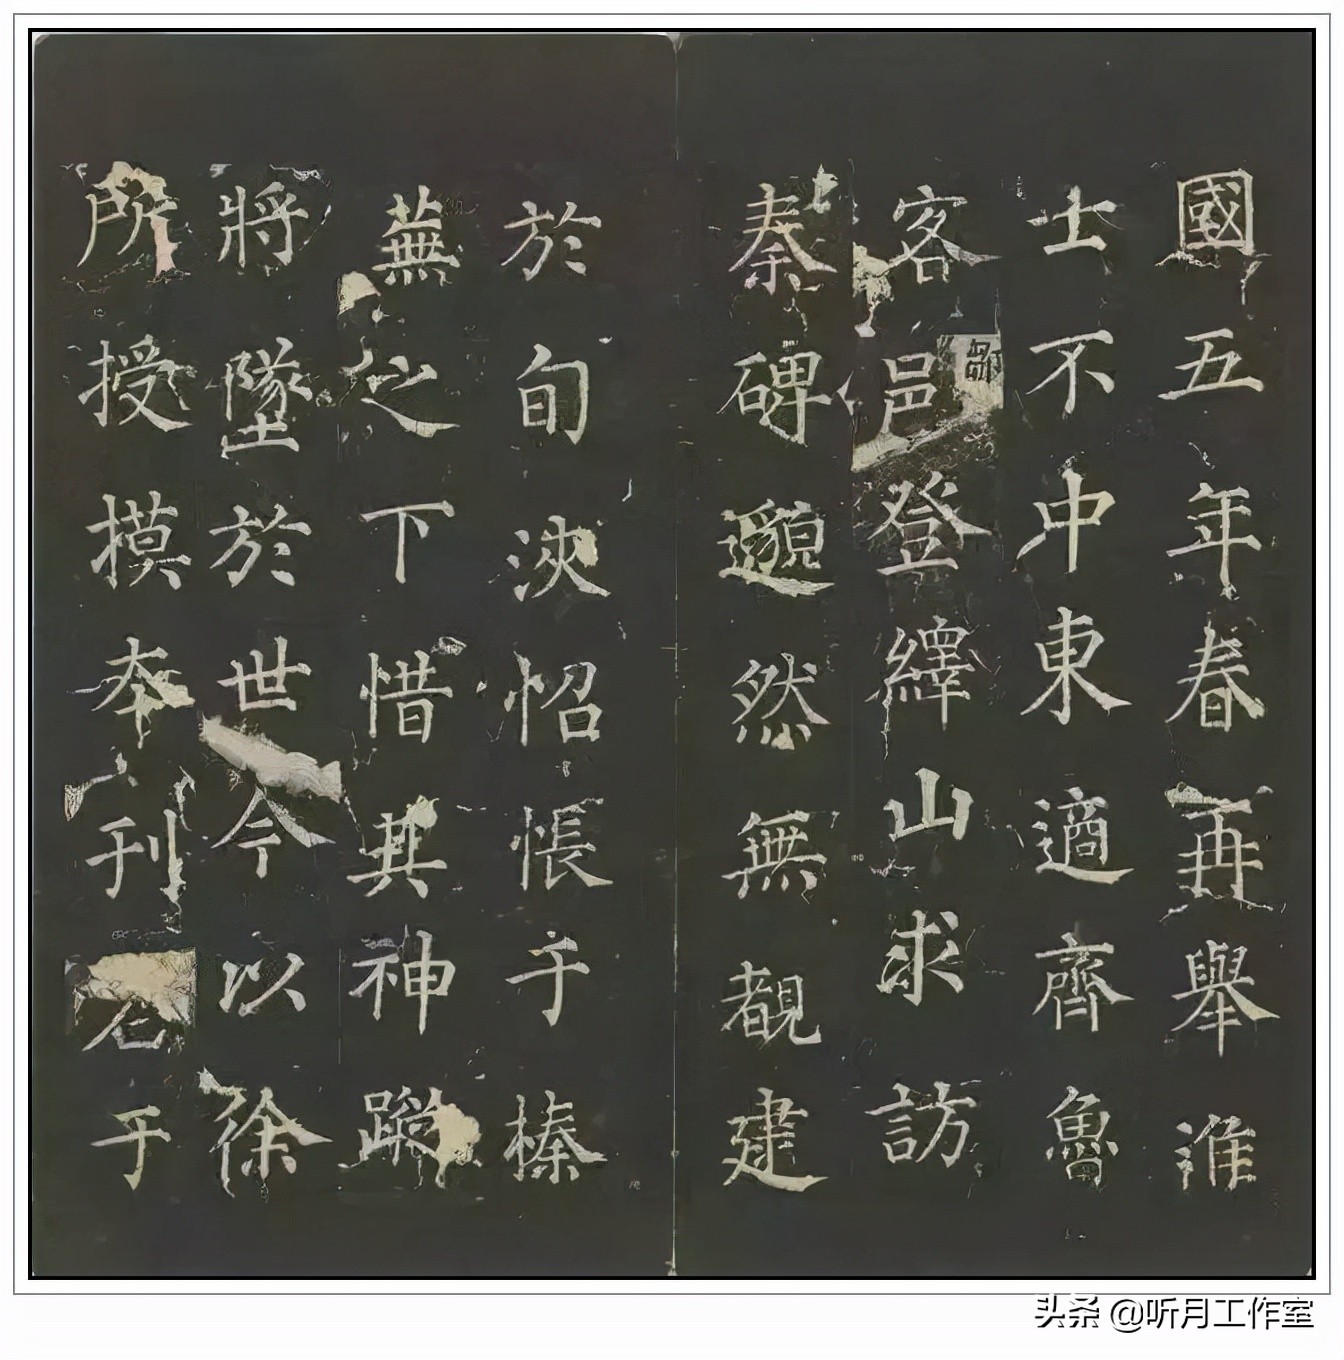 國五年春再舉進
士不中東適齊魯
客鄒邑登繹山求訪
秦碑邈然無覩建
於旬浹怊悵于榛
蕪之下惜其神蹤
將墜於世今以徐
所授摸夲刊石于
头条 @听月工作室